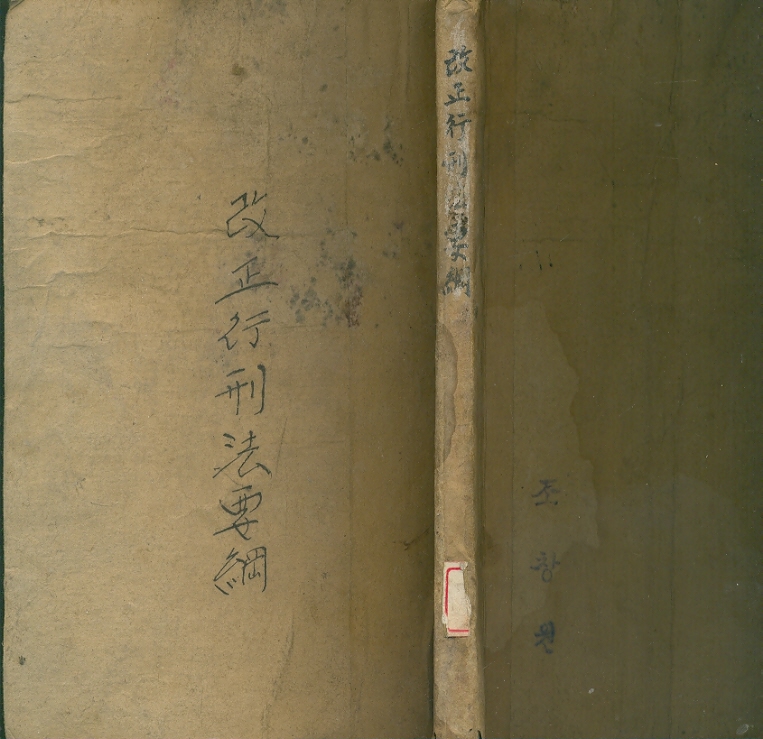 改正行刑法要綱
改正行刑法要綱
조창원